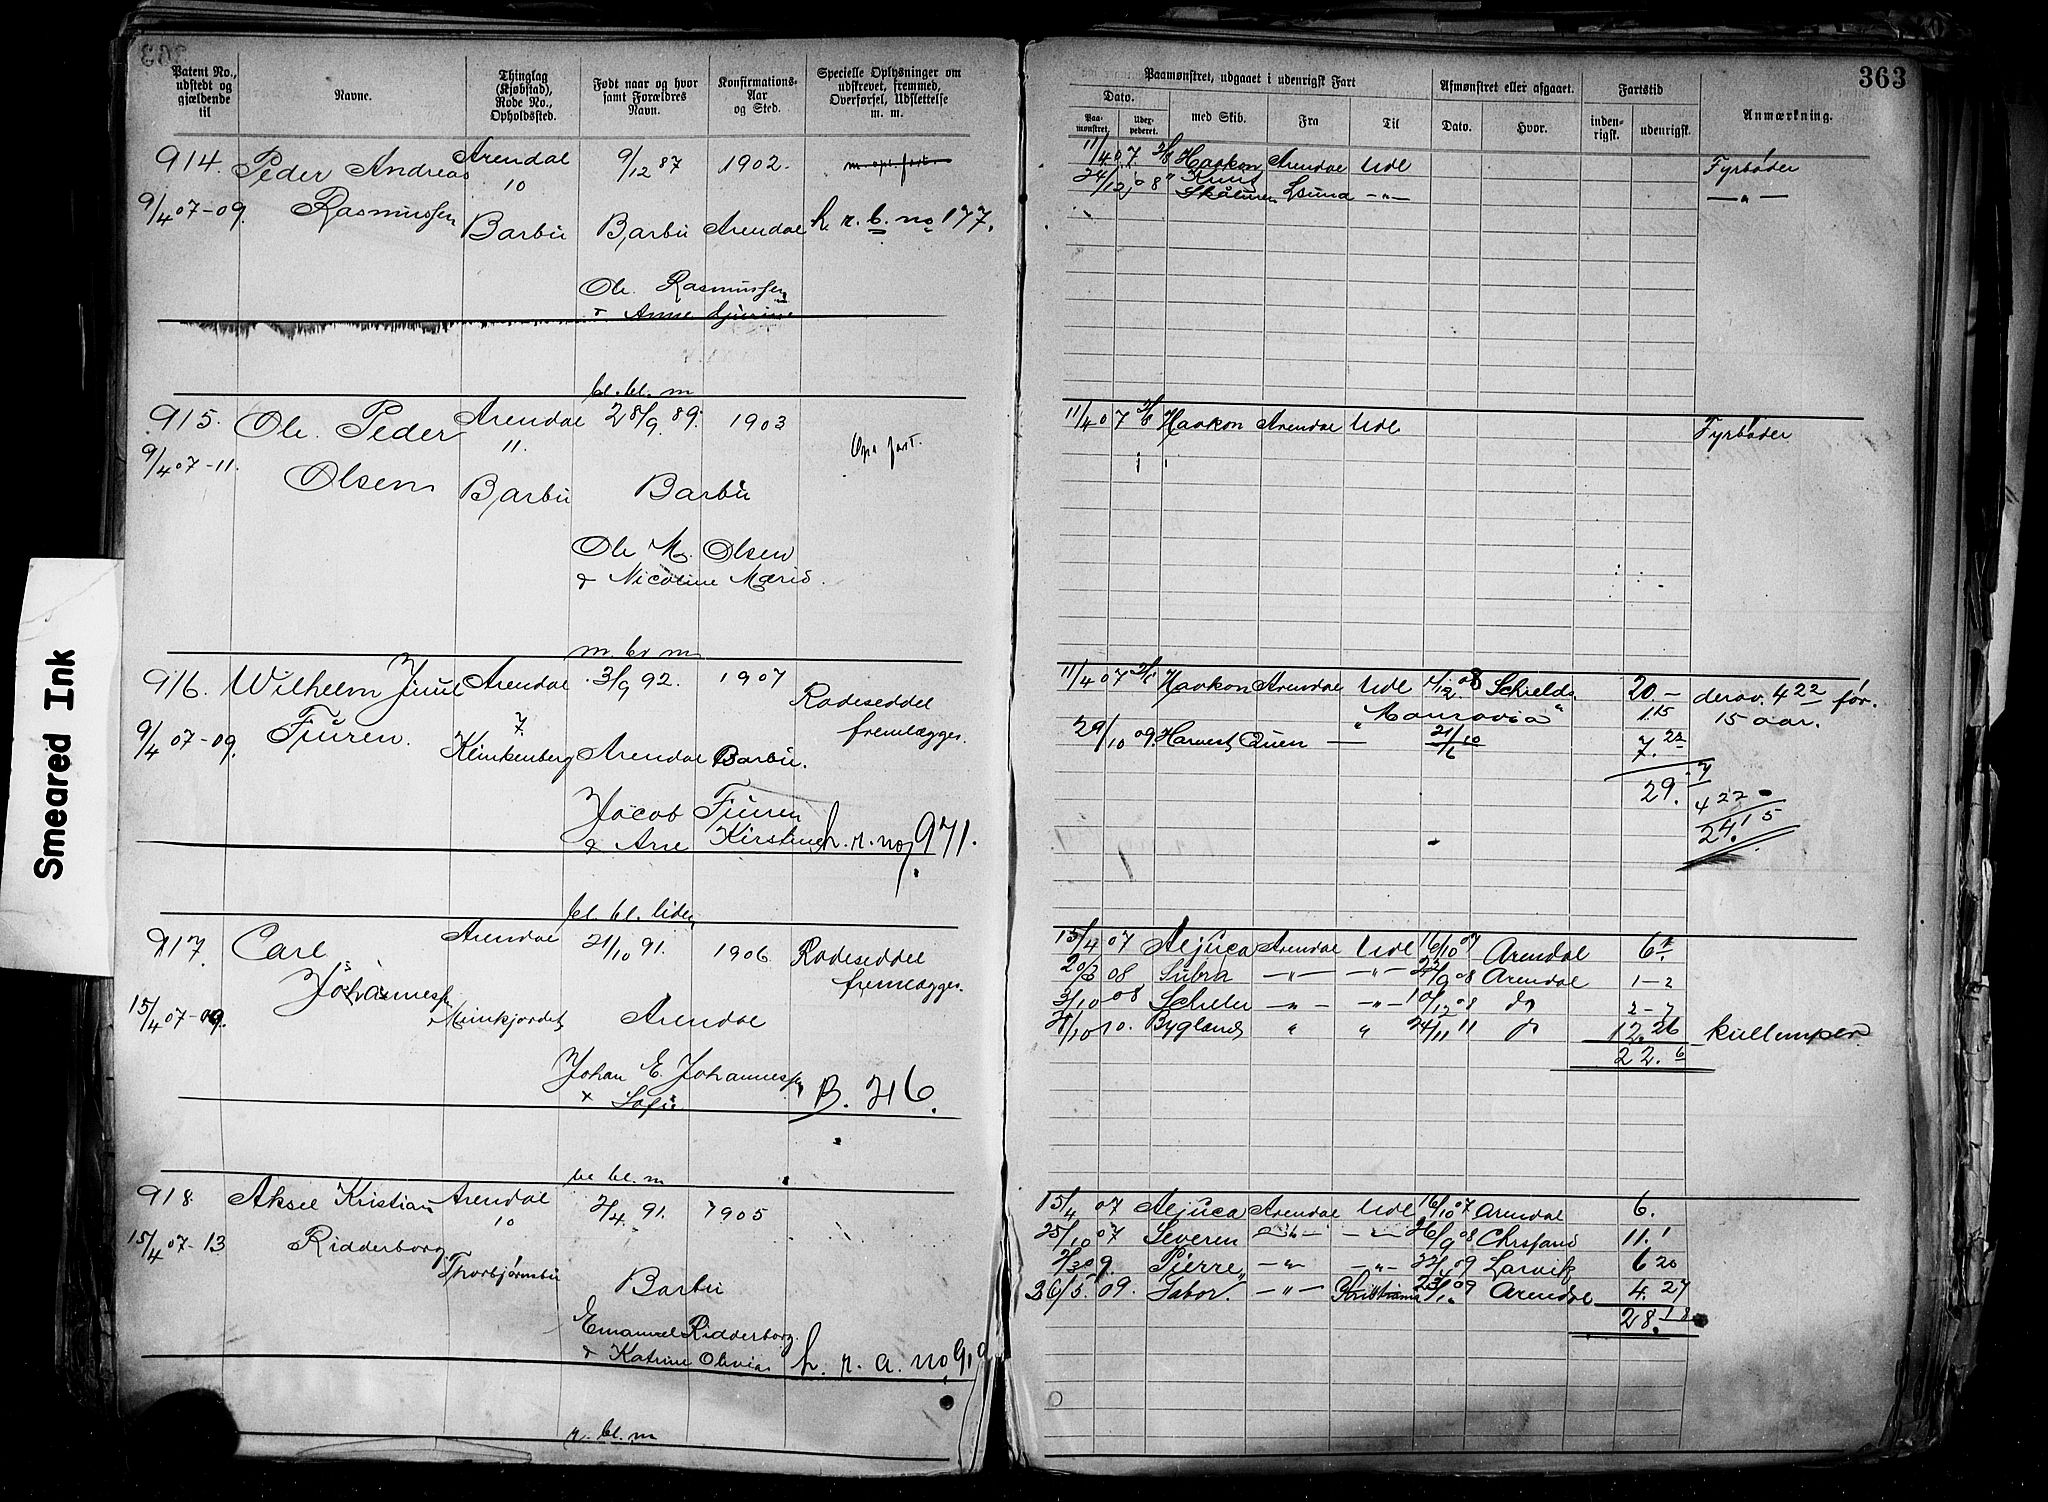 363
Patent No., udstedt og gjældende til
Navne.
Thinglag (Kjøbstad), Rode No., Opholdssted.
Født naar og hvor samt Forældres Navn.
Konfirmations-Aar og Sted.
Specielle Oplysninger om udskrevet, fremmed, Overførsel, Udslettelse m. m.
Paamønstret, udgaaet i udenrigsk Fart
Dato.
Paamønstret.
Udexpederet.
med Skib.
Fra
Til
Afmønstret eller afgaaet.
Dato.
Hvor.
Fartstid
indenrigsk.
udenrigsk.
Anmærkning.
Smeared Ink
914. Peder Andreas Arendal 9/12 87 1902.
10
9/4 07-09. Rasmussen Barbu Barbu Arendal h. r. b. no 177.
Ole Rasmussen
& Anne
11/4 07 Haakon Arendal Udl Fyrbøder
24/12 08 Knut Skåluren Lsund -"- -"-
bl. bl. m
915. Ole Peder Arendal 28/9 89. 1903
11.
9/4 07-11. Olsen Barbu Barbu
Ole M. Olsen
& Nicoline Marie.
11/4 07 Haakon Arendal Udl Fyrbøder
m. br m
916. Wilhelm Juul Arendal 3/9 92. 1907 Rodeseddel
7. fremlægges.
9/4 07-09. Fiuren. Klinkenberg Arendal Barbu.
Jacob Fiuren
& Ane Kirstine h. r. no 971.
11/4 07 Haakon Arendal Udl 08 Schields 20- derav. 4 22 før.
1.15 15 aar.
29/10 09. Harvest Quen — 7. 22
29. 7
4 22
24. 15
bl. bl. liden
917. Carl Arendal 21/10 91. 1906 Rodeseddel
Johannessen fremlægges.
15/4 07-09. Munkjordet Arendal
Johan E. Johannessen B. 216.
Sofie
15/4 07 Aljuca Arendal Udl 16/10 07 Arendal 6.1
08 Subra -"- -"- 08 Arendal 1-2
3/10 08 -"- -"- 10/12 08 do 2-7
10. Bygland " " 24/11 11 do 12.26 kullemper
22.6
bl bl. m
918 Aksel Kristian Arendal 2/4 91. 1905
10
15/4 07-13 Ridderborg. Thorbjørnsbu
Barbu
Emanuel Ridderborg
& Katrine Olivia h. r. a. no
15/4 07 Aljuca Arendal Udl 16/10 07 Arendal 6.
25/10 07 Severen -"- -"- 26/9 08 Chrsand 11.1
09. Pierre -"- -"- 09 Larvik 6 20
26/5. 09. Gabor. -"- Kristiania 09 Arendal 4.27
28.18
r. bl. m